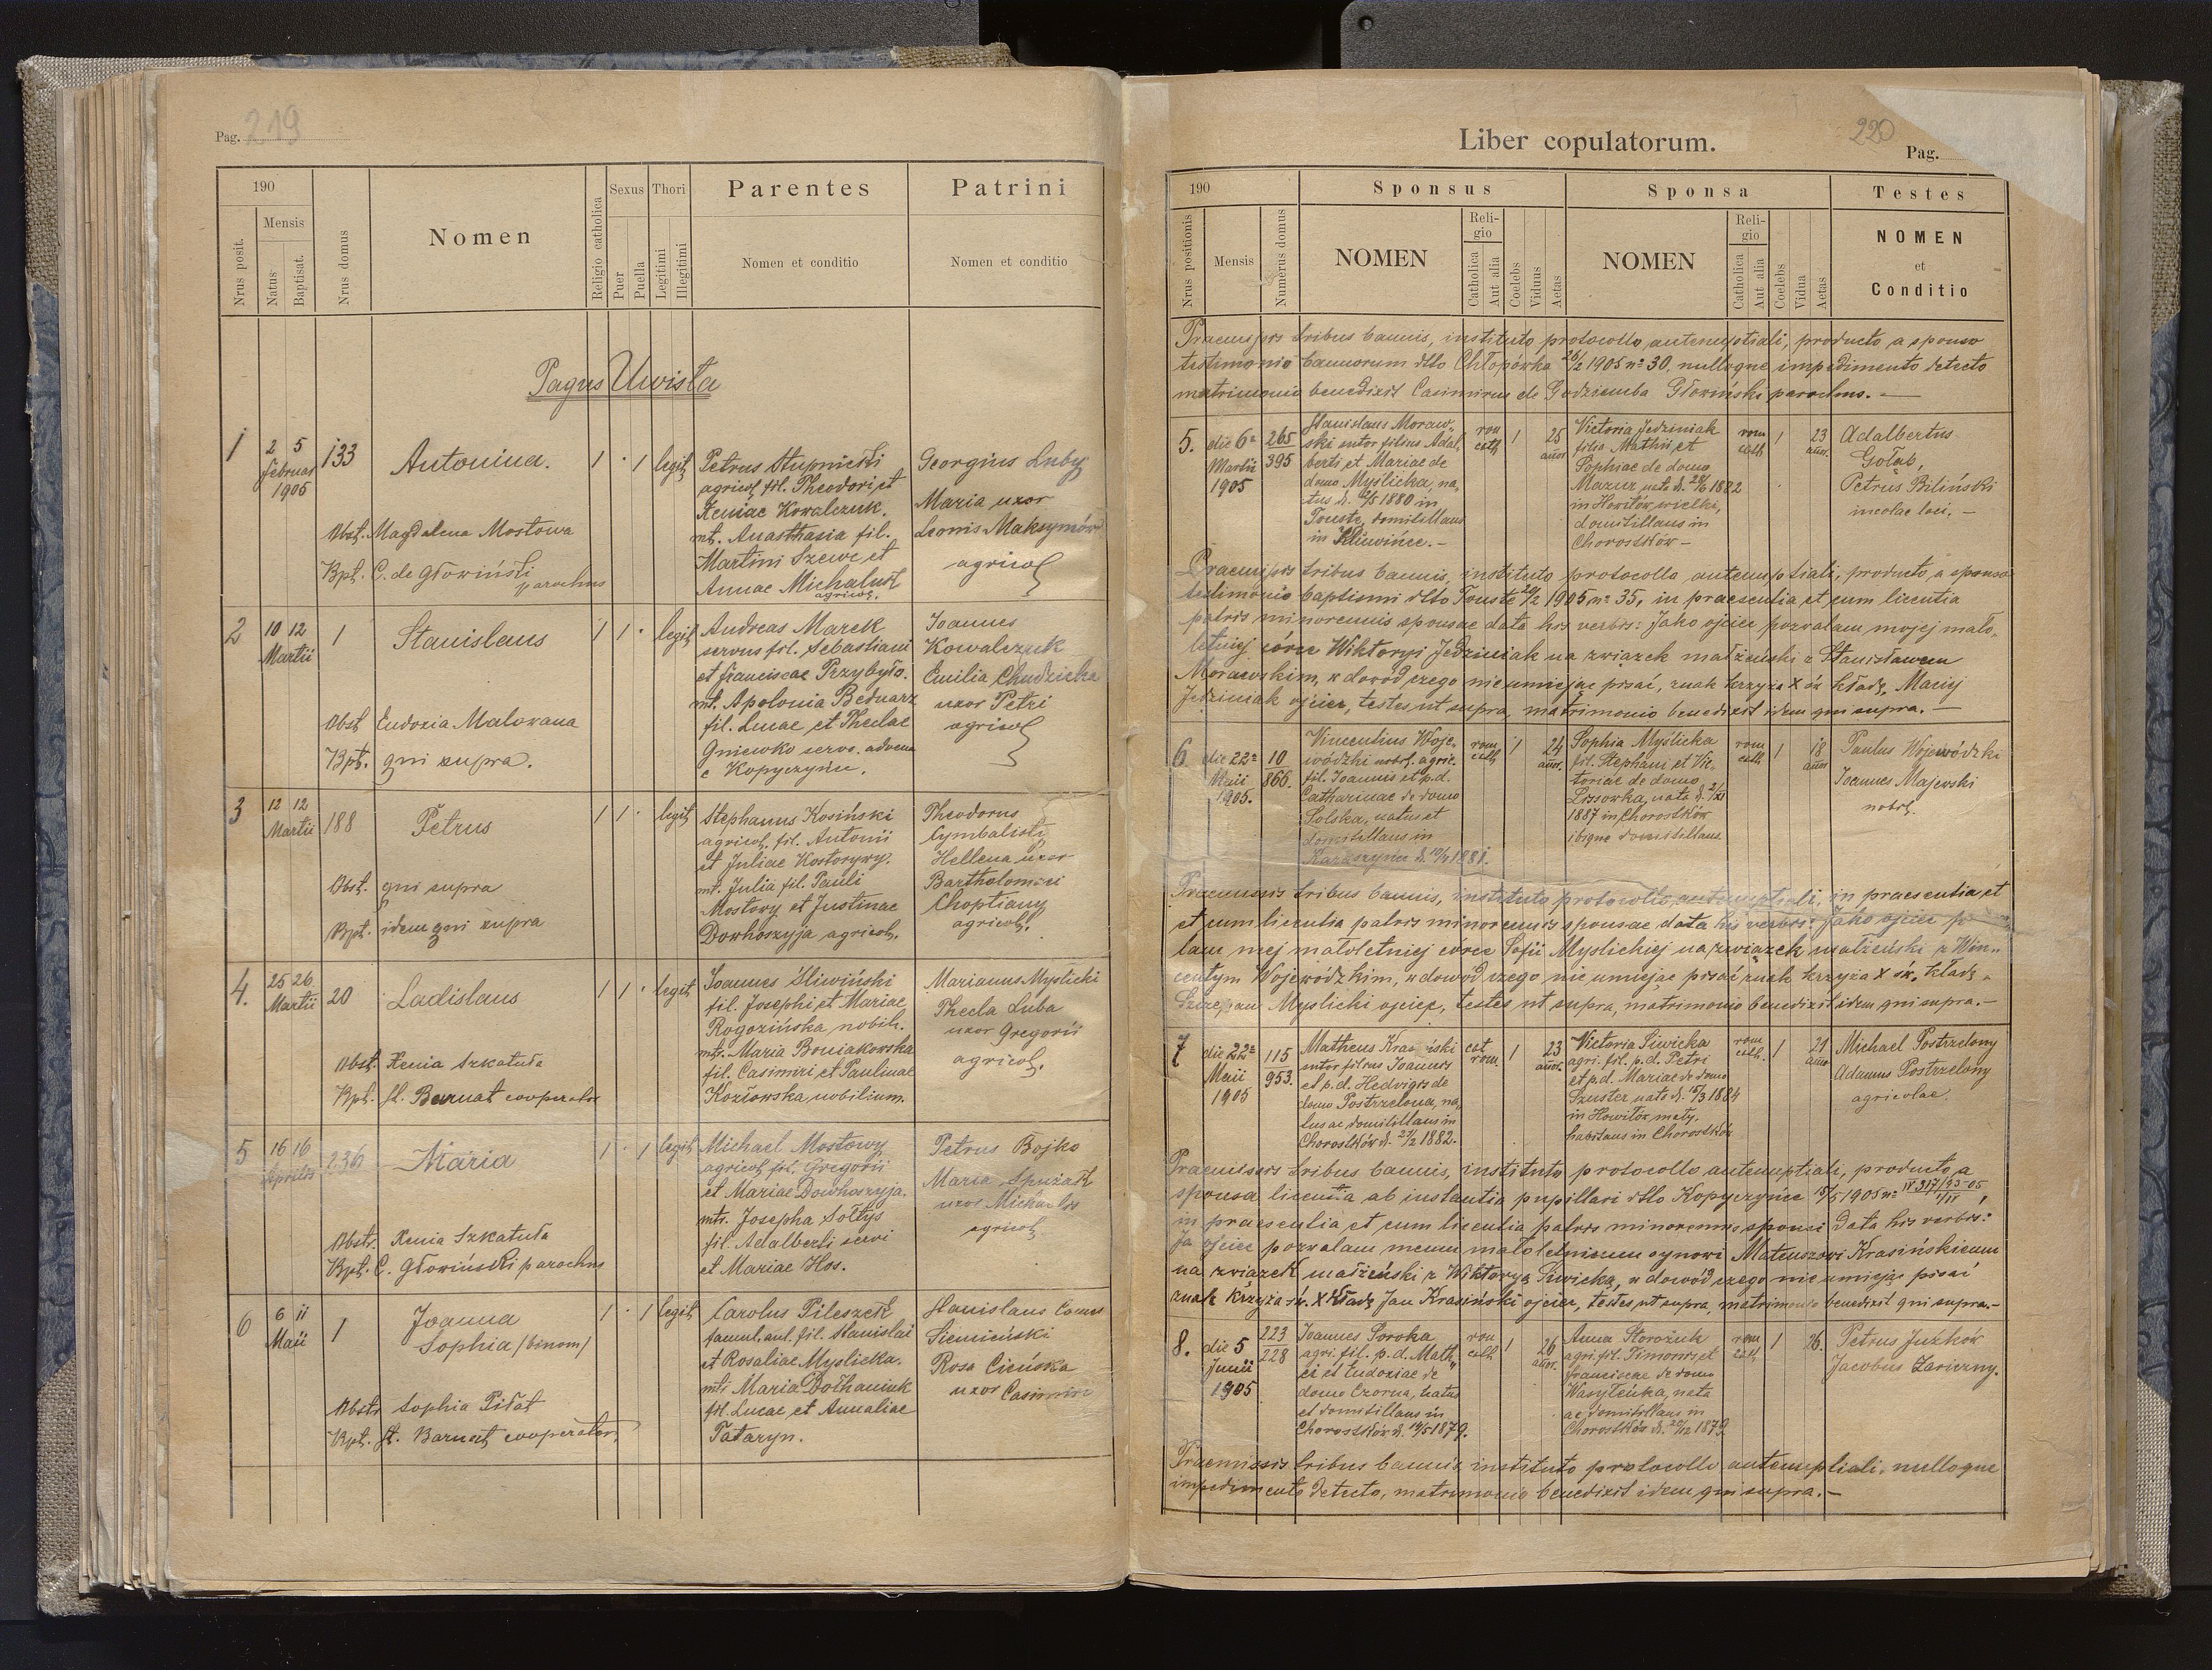 Pag. 219
190
Nrus posit.
Mensis
Natus
Baptisat.
Nrus domus
Nomen
Religio catholica
Sexus
Puer
Puella
Thori
Legitimi
Illegitimi
Parentes
Nomen et conditio
Patrini
Nomen et conditio
Pagus Uwista
1
2 5
Februar
1905
133
Antonina.
1 · 1 legit.
Petrus Stupnicki
agricol. fil. Theodori et
Xeniae Kowalczuk.
mt. Anasthasia fil.
Martini Szewc et
Annae Michaluk
agricol.
Georgius Luby
Maria uxor
Leonis Maksymów
agricol.
Obst. Magdalena Mostowa
Bpt. C. de Głowiński
parochus
2
10 12
Martii
1
Stanislaus
1 1 · legit.
Andreas Marek
servus fil. Sebastiani
et Franciscae Przybyło.
mt. Apolonia Bednarz
fil. Lucae et Theclae
Gniewko servo. advena
e Kopyczyńce.
Joannes
Kowalczuk
Emilia Chudzicka
uxor Petri
agricol.
Obst. Eudoxia Malowana
Bpt. qui supra.
3
12 12
Martii
188
Petrus
1 1 · legit.
Stephanus Kosiński
agricol. fil. Antonii
et Juliae Kostorywy.
mt. Julia fil. Pauli
Mostowy et Justinae
Dowhoszyja agricol.
Theodorus
Cymbalisty
Hellena uxor
Bartholomaei
Choptiany
agricol.
Obst. qui supra
Bpt. idem qui supra
4.
25 26
Martii
20
Ladislaus
1 1 · legit.
Joannes Śliwiński
fil. Josephi et Mariae
Rogozińska nobil.
mt. Maria Broniakowska
fil. Casimiri et Paulinae
Kozłowska nobilium.
Marianus Myślicki
Thecla Luba
uxor Gregorii
agricol.
Obst. Xenia Szkatuła
Bpt. St. Barnat cooperator
5
16 16
Aprilis
236
Maria
1 · 1 legit.
Michael Mostowy
agricol. fil. Gregorii
et Mariae Dowhoszyja.
mtr. Josepha Sołtys
fil. Adalberti servi
et Mariae Hos.
Petrus Bojko
Maria Spużak
uxor Michaelis
agricol.
Obstr. Xenia Szkatuła
Bpt. C. Głowiński parochus
6
6 11
Maii
1
Joanna
Sophia /binom/
1 · 1 legit.
Carolus Pileszek
famul. aul. fil. Stanislai
et Rosaliae Myslicka.
mtr. Maria Dołhaniuk
fil. Lucae et Annaliae
Tataryn.
Stanislaus Comes
Siemieński
Rosa Cieńska
uxor Casimiri
Obstr. Sophia Piłat
Bpt. St. Barnat cooperator.
Liber copulatorum.
220
Pag.
190
Nrus positionis
Mensis
Numerus domus
Sponsus
NOMEN
Reli-
gio
Catholica
Aut alia
Coelebs
Viduus
Aetas
Sponsa
NOMEN
Reli-
gio
Catholica
Aut alia
Coelebs
Vidua
Aetas
Testes
NOMEN
et
Conditio
Praemissis tribus bannis, instituto protocollo antenuptiali, producto a sponso
testimonio bannorum dtto Chłopówka 26/2 1905 no 30, nulloque impedimento detecto
matrimonio benedixit Casimirus de Godziemba Głowiński parochus. —
5.
die 6a
Martii
1905
265
395
Stanislaus Moraw-
ski sutor filius Adal-
berti et Mariae de
domo Myślicka, na-
tus d. 2/5 1880 in
Touste, domicillans
in Kluwińce. —
rom
cath
1
25
annor.
Victoria Jedziniak
filia Mathii et
Sophiae de domo
Mazur nata d. 28/6 1882
in Howiłów wielki,
domicillans in
Chorostków —
rom
cath
1
23
annor.
Adalbertus
Gołąb,
Petrus Biliński
incolae loci. —
Praemissis tribus bannis, instituto protocollo antenuptiali, producto a sponso
testimonio baptismi dtto Touste 20/2 1905 no 35, in praesentia et cum licentia
patris minorennis sponsae data his verbis: Jako ojciec pozwalam mojej mało-
letniej córce Wiktoryi Jedziniak na związek małżeński z Stanisławem
Morawskim, w dowód czego nie umiejąc pisać, znak krzyża X św. kładę. Maciej
Jedziniak ojciec, testes ut supra, matrimonio benedixit idem qui supra. —
6
die 22a
Maii
1905.
10
866.
Vincentius Woje-
wódzki nobil. agric.
fil. Joannis et p.d.
Catharinae de domo
Solska, natus et
domicillans in
Karaszyńce d. 10/4 1881.
rom
cath
1
24
annor.
Sophia Myślicka
fil. Stephani et Vic-
toriae de domo
Lissowka, nata d. 2/XI
1887 in Chorostków
ibique domicillans.
rom
cath
1
18
annor.
Paulus Wojewódzki
Joannes Majewski
nobil.
Praemissis tribus bannis, instituto protocollo antenuptiali, in praesentia et
et cum licentia patris minorennis sponsae data his verbis: Jako ojciec
lam mej małoletniej córce Zofii Myślickiej na związek małżeński z Win-
centym Wojewódzkim, w dowód czego nie umiejąc pisać znak krzyża X św. kładę.
Szczepan Myslicki ojciec, testes ut supra, matrimonio benedixit idem qui supra. —
7
die 22a
Maii
1905
115
953.
Matheus Krasiński
sutor filius Joannis
et p.d. Hedvigis de
domo Postrzelona, na-
tus ac domicillans in
Chorostków d. 21/2 1882.
cat
rom.
1
23
annor.
Victoria Siwicka
agri. fil. p.d. Petri
et p.d. Mariae de domo
Szuster nata d. 15/3 1884
in Howiłów mały,
habitans in Chorostków
rom
cath.
1
21
annor
Michael Postrzelony
Adamus Postrzelony
agricolae.
Praemissis tribus bannis, instituto protocollo antenuptiali, producto a
sponsa licentia ab instantia pupillari dtto Kopyczyńce 15/5 1905 no IV 317/93-05
in praesentia et cum licentia patris minorennis sponsi data his verbis:
Ja ojciec pozwalam memu małoletniemu synowi Mateuszowi Krasińskiemu
na związek małżeński z Wiktoryą Siwicką, w dowód czego nie umiejąc pisać
znak krzyża św. X kładę Jan Krasiński ojciec, testes ut supra, matrimonio benedixit qui supra. —
8.
die 5
Junii
1905
223
228
Joannes Soroka
agri. fil. p.d. Math-
ei et Eudoxiae de
domo Czorna, natus
et domicillans in
Chorostków d. 19/5 1879.
rom
cath
1
26
annor.
Anna Storożuk
agri. fil. Timonis et
Franciscae de domo
Wasyleńka, nata
ac domicillans in
Chorostków d. 20/12 1879
rom
cath
1
26.
Petrus Juzków
Jacobus Zarieczny.
Praemissis tribus bannis, instituto protocollo antenuptiali, nulloque
impedimento detecto, matrimonio benedixit idem qui supra. —